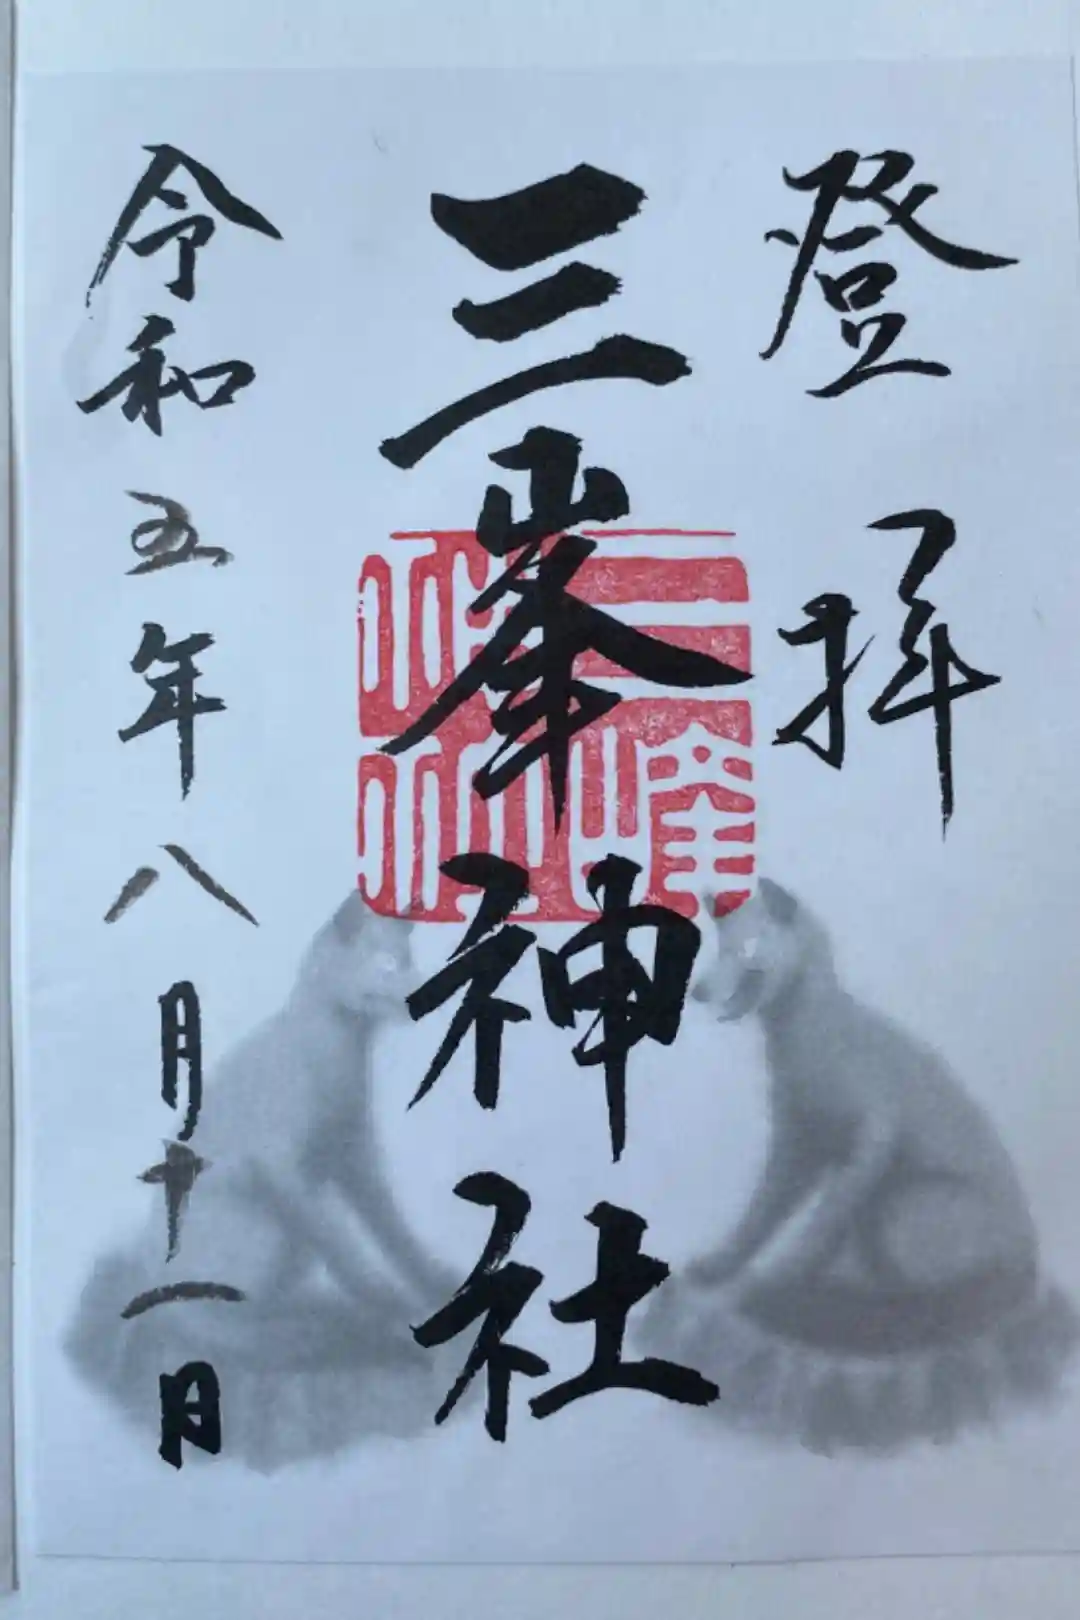 登拝
三峯神社
令和五年八月十一日